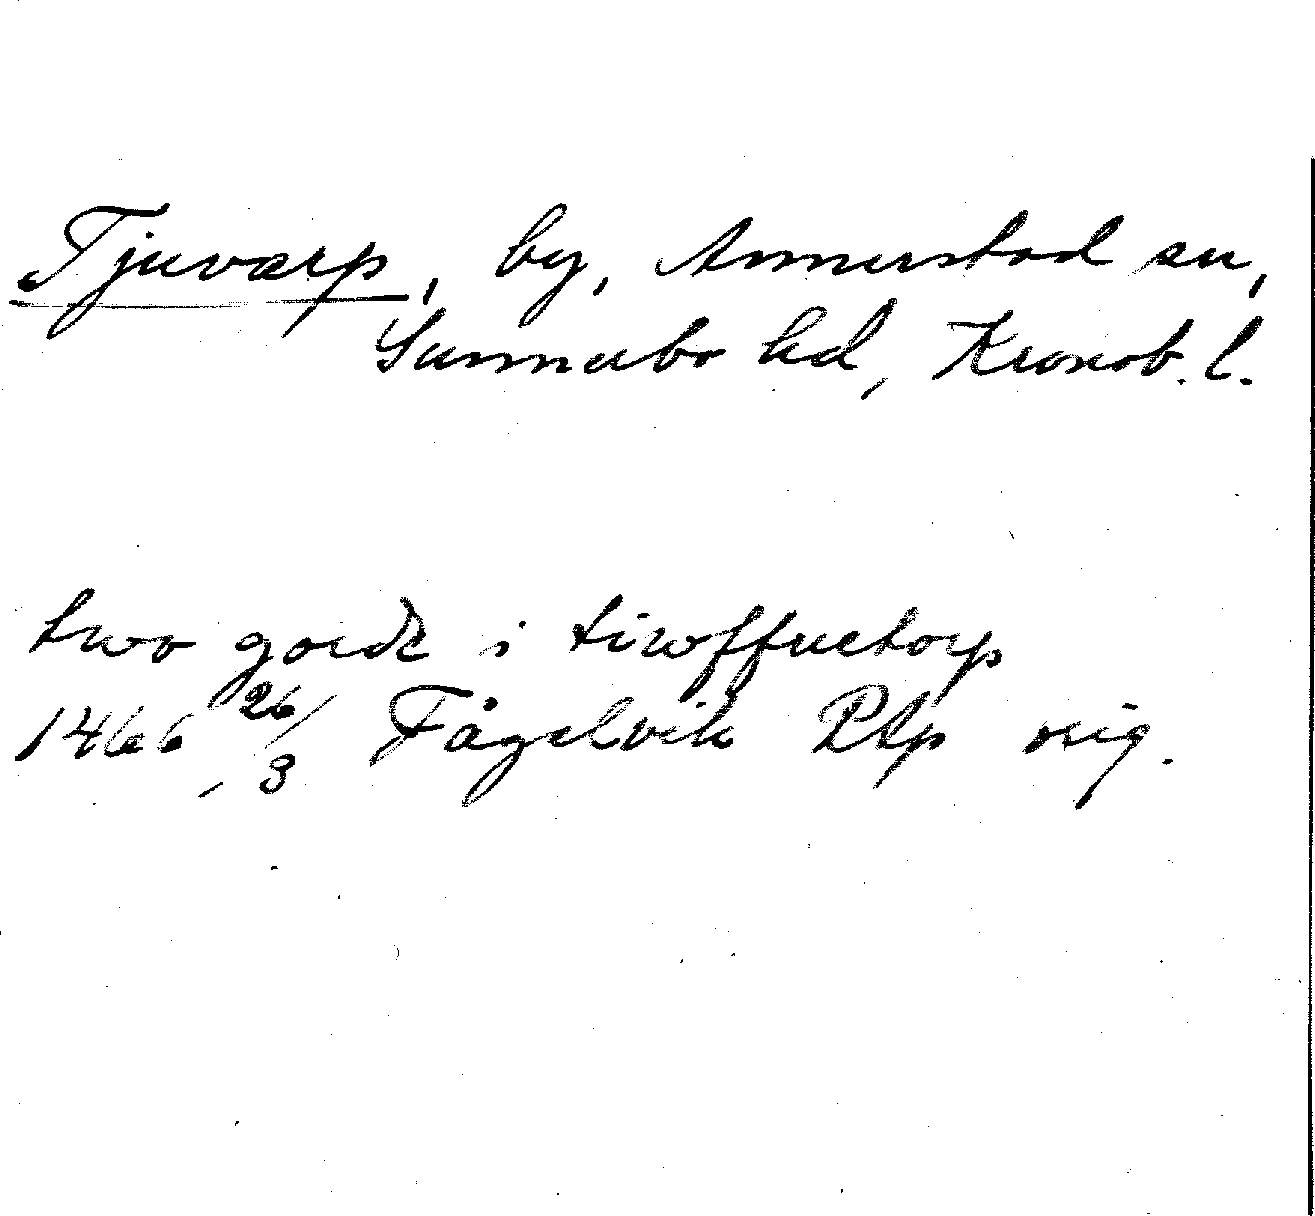 Tjuvarp, by, Annerstad sn,
Sunnerbo hd, Kronob. l.
two gorde i tiwffuetorp
1466 26/3 Fågelvik Rtp orig.